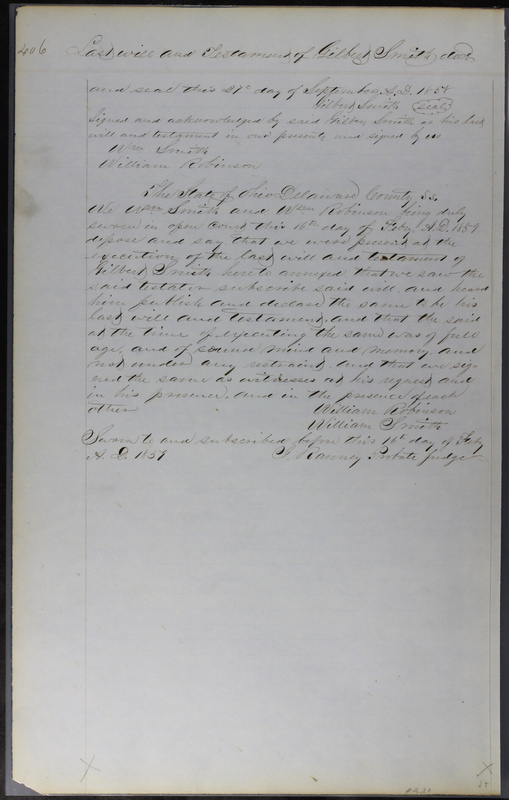 406
Last will and Testament of Gilbert Smith decd
and seal this 27th day of September A.D. 1858
Gilbert Smith (seal)
Signed and acknowledged by said Gilbert Smith as his last
will and testament in our presents and signed by us
Wm Smith
William Robinson
The State of Ohio Delaware County Ss.
We Wm Smith and Wm Robinson being duly
sworn in open court this 16th day of Feby A.D. 1859
depose and say that we were present at the
execution of the last will and testament of
Gilbert Smith hereto annexed that we saw the
said testator subscribe said will and heard
him publish and declare the same to be his
last will and testament, and that the said
at the time of executing the same was of full
age, and of sound mind and memory and
not under any restraint and that we sig-
ned the same as witnesses at his request and
in his presence and in the presence of each
other
William Robinson
William Smith
Sworn to and subscribed before this 16th day of Feby
A.D. 1859
Ranney Probate Judge